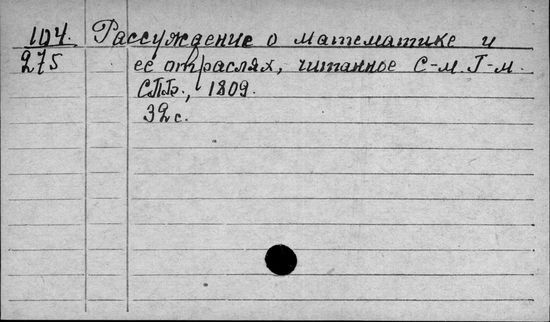 104. Рассуждение о математике и
275 ее отраслях, читанное С-м. Г-м.
С.Пб., 1809.
32 с.